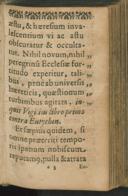 æstu, & hæresum inva-
lescentium vi ac æstu
obscuratur & occulta-
tur. Nihil novum, nihil
peregrinū Ecclesiæ for-
titudo experitur, tali-
bus, penè ab universis
hæreticis, quæstionum
turbinibus agitata, in-
quit Vigilius libro primo
contra Eutychen.
Et sæpius quidem, si
omne præteriti tempo-
ris spatium nobiscum
reputamus, nulla & atrata